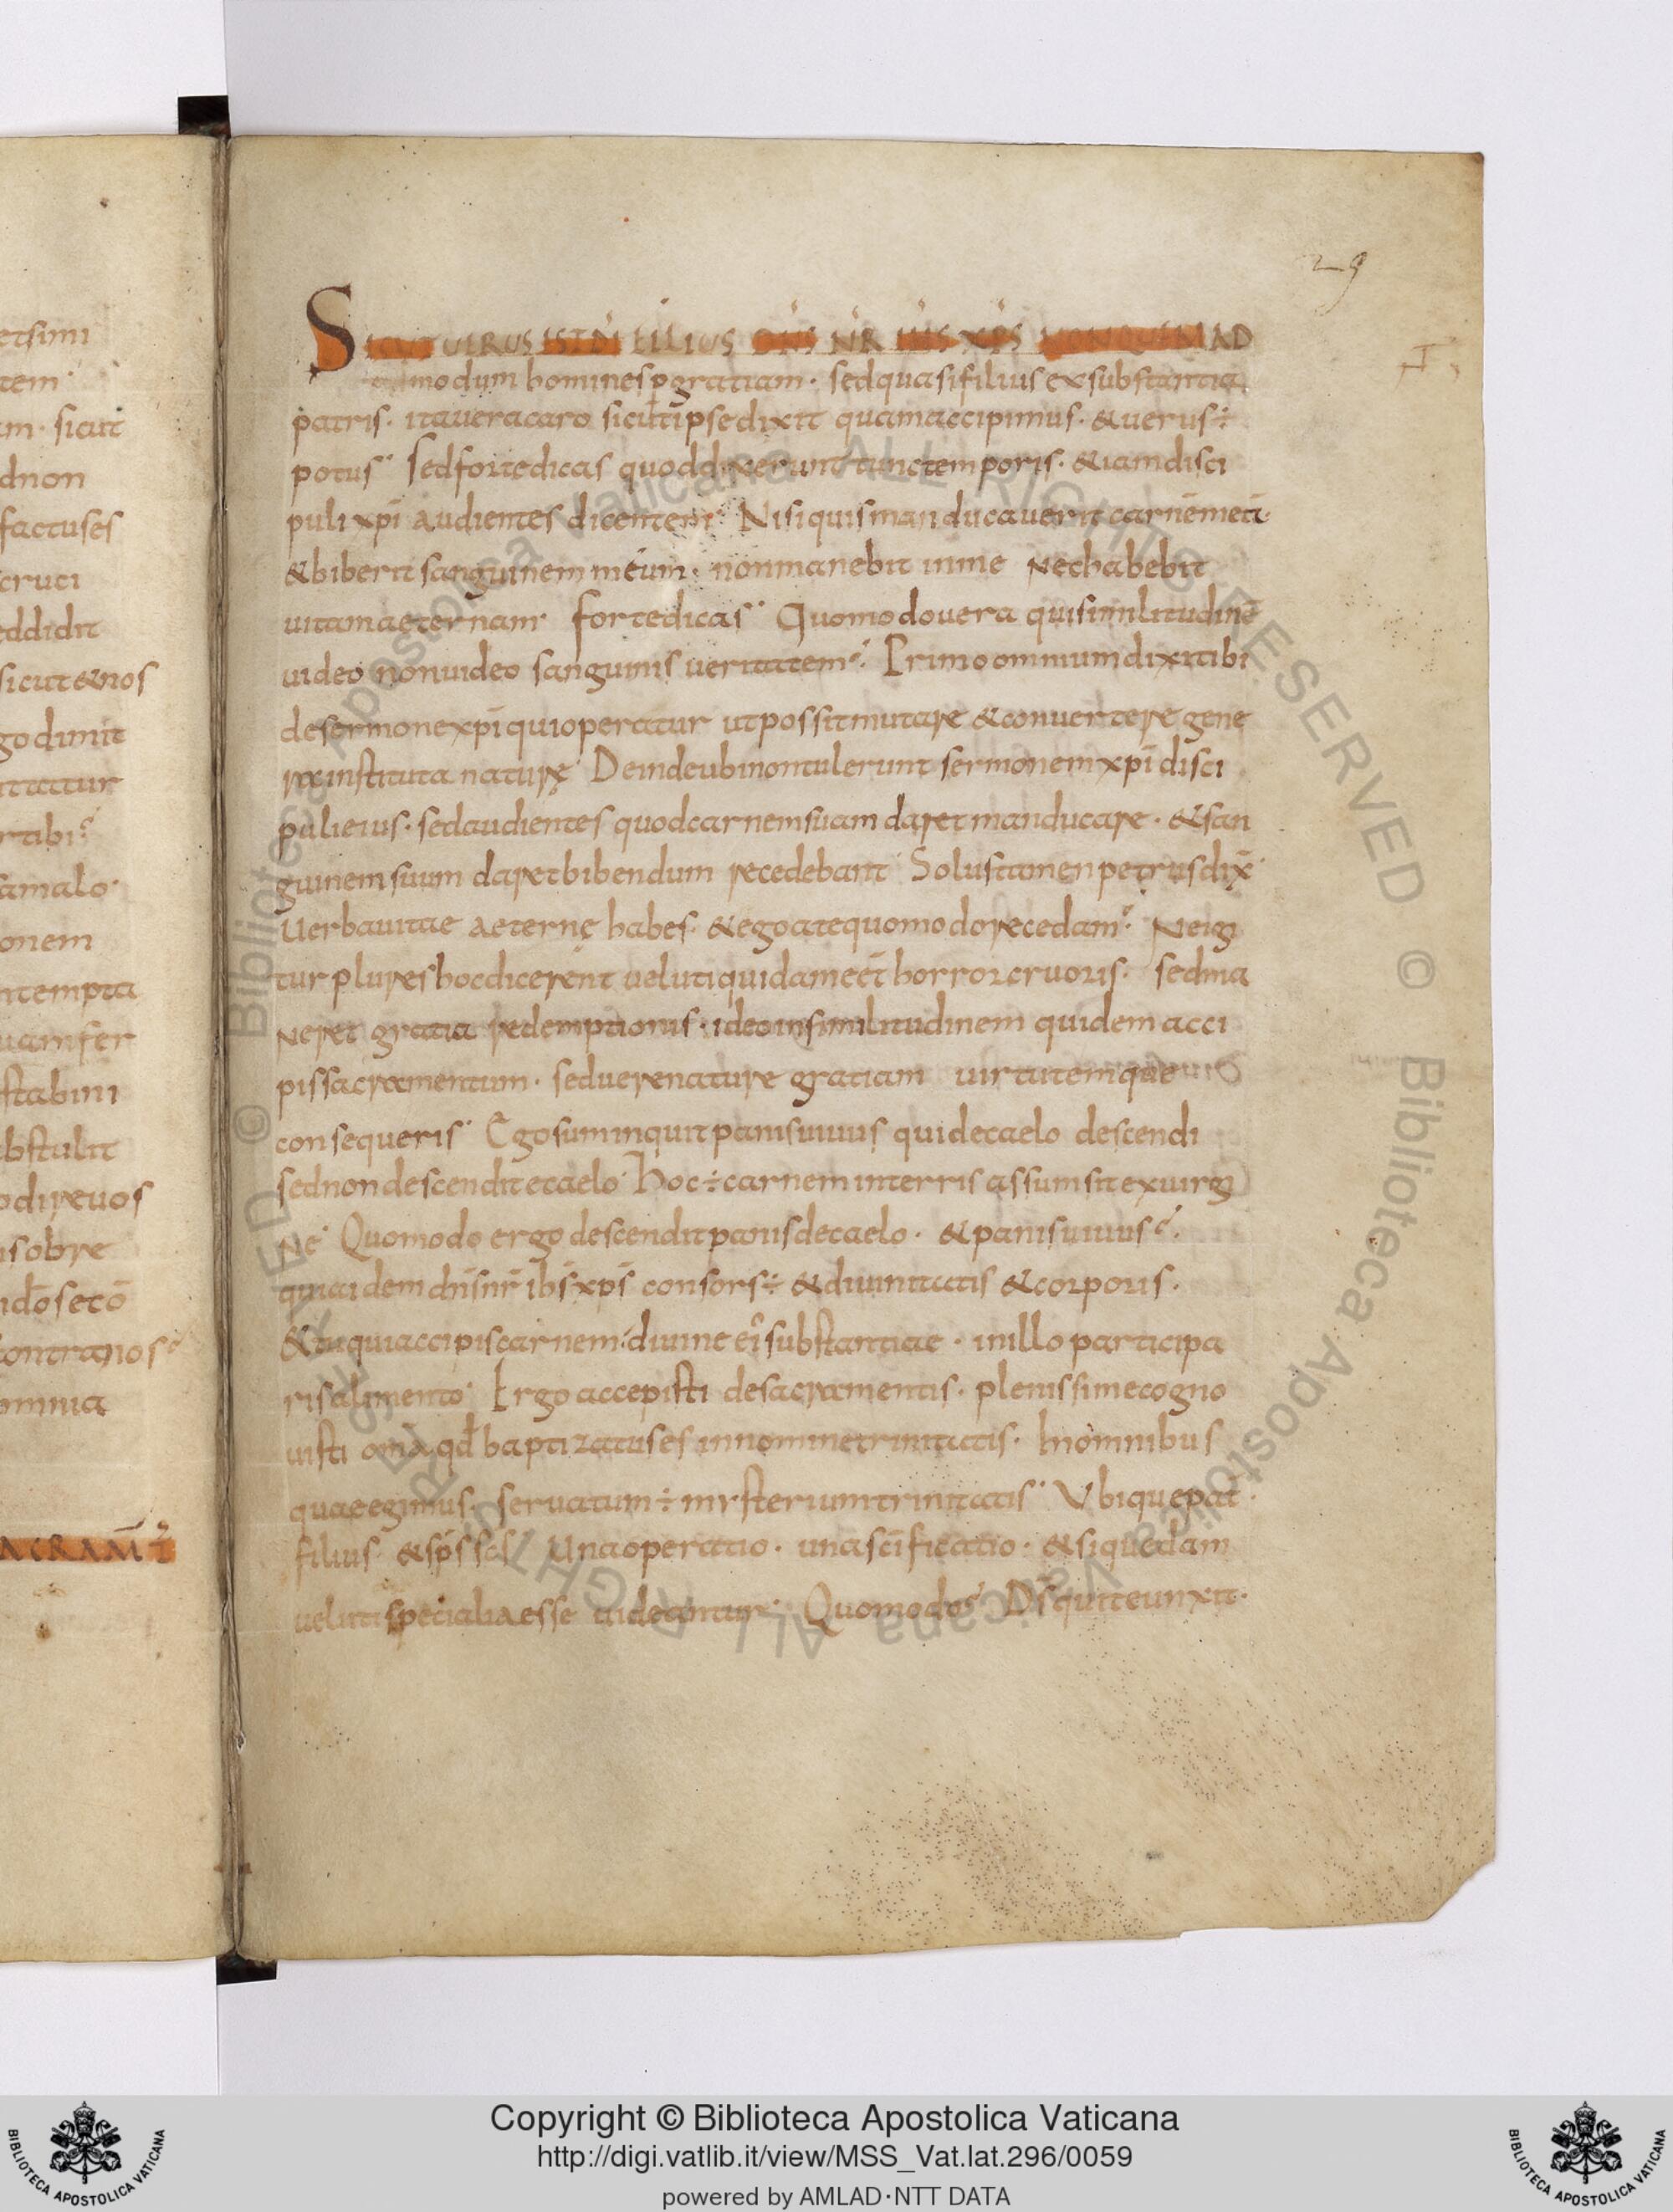 etsimi
tem
m· sicut
dnon
factuses
cruci
eddidit
sicut&nos
go dimit
rtibi
amalo·
onem
ntempta
uamfer
stabini
bstulit
odireuos
isobre
ontranos
omnia
ACRAM̄
29
SICUT UERUS EST DI FILIUS DN̄S NR̄ IH̄S XP̄S NON QUEMAD
modum homines ꝑgratiam· sedquasifilius exsubstantia
patris· itaueracaro sicutipsedixit quamaccipimus· &uerus÷
potus· sedfortedicas quoddixerunt tunctemporis· &iamdisci
puli xp̄i audientes dicentem· Nisiquismanducauerit carnēmeā·
&biberit sanguinem meum· nonmanebit inme nechabebit
uitamaeternam· fortedicas· Quomodouera quisimilitudinē
uideo nonuideo sanguinis ueritatem· Primoomniumdixitibi
desermonexp̄i quioperatur utpossitmutare &conuertere gene
rainstituta naturę· Deindeubinontulerunt sermonemxp̄i disci
pulieius· sedaudientes quodcarnemsuam daret manducare· &san
guinemsuum daretbibendum recedebant· Solustamenpetrusdix̄
Uerbauitae aeternę habes &egoatequomodorecedam· Neigi
tur plureshocdicerent uelutiquidameēt horrorcruoris· sedma
neret gratia redemptionis· ideoinsimilitudinem quidem acci
pissacramentum· seduerenature gratiam uirtutemque
consequeris· Egosuminquitpanisuiuus quidecaelo descendi
sednondescenditecaelo· hoc÷carneminterris assumsitexuirgi
ne· Quomodo ergo descenditpanisdecaelo· &panisuiuus·
quiaidem dn̄sn̄r ih̄sxp̄s consors÷ &diuinitatis &corporis·
&tuquiaccipiscarnem· diuine eĩ substantiae· inillo participa
risalimento· Ergoaccepisti desacramentis· plenissimecogno
uisti om̄a qd̄ baptizatuses innominetrinitatis· Inomnibus
quaeegimus· seruatum÷mysteriumtrinitatis· Ubiquepat̄·
filius &sp̄s sc̄s Unaoperatio· unasc̄ificatio· &siquedam
uelutispecialiaesse uideantur· Quomodo· Dsquiteunxit·
Copyright © Biblioteca Apostolica Vaticana
http://digi.vatlib.it/view/MSS_Vat.lat.296/0059
powered by AMLAD·NTT DATA
BIBLIOTECA APOSTOLICA VATICANA
BIBLIOTECA APOSTOLICA VATICANA
© Biblioteca Apostolica Vaticana ALL RIGHTS RESERVED © Biblioteca Apostolica Vaticana ALL RIGHTS RESERVED